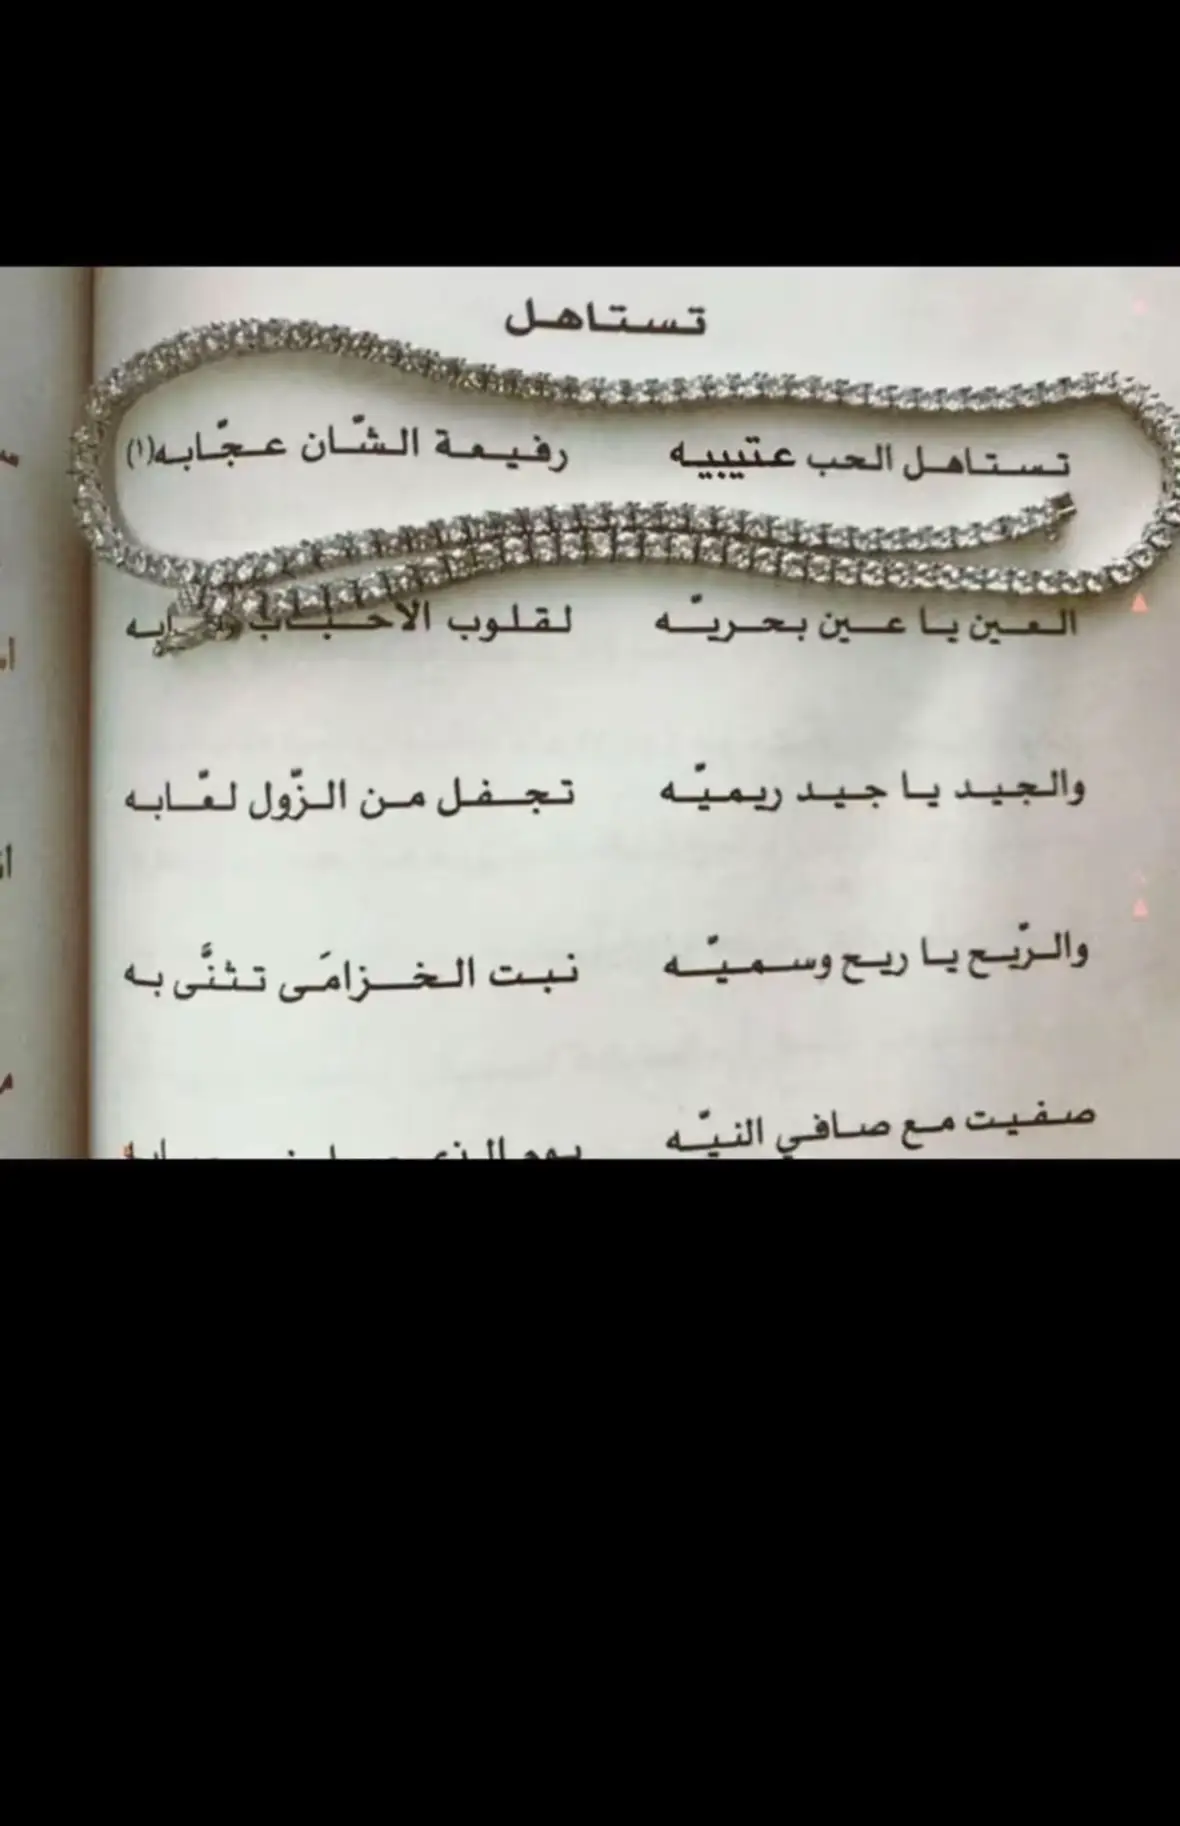 تستاهل
تستاهل الحب عتيبيه رفيعة الشّان عجّابه(١)
العين يا عين بحريّه لقلوب الاحباب
والجيد يا جيد ريميّه تجفل من الزّول لعّابه
والرّيح يا ريح وسميّه نبت الخزامَى تثنَّى به
صفيت مع صافي النيّه